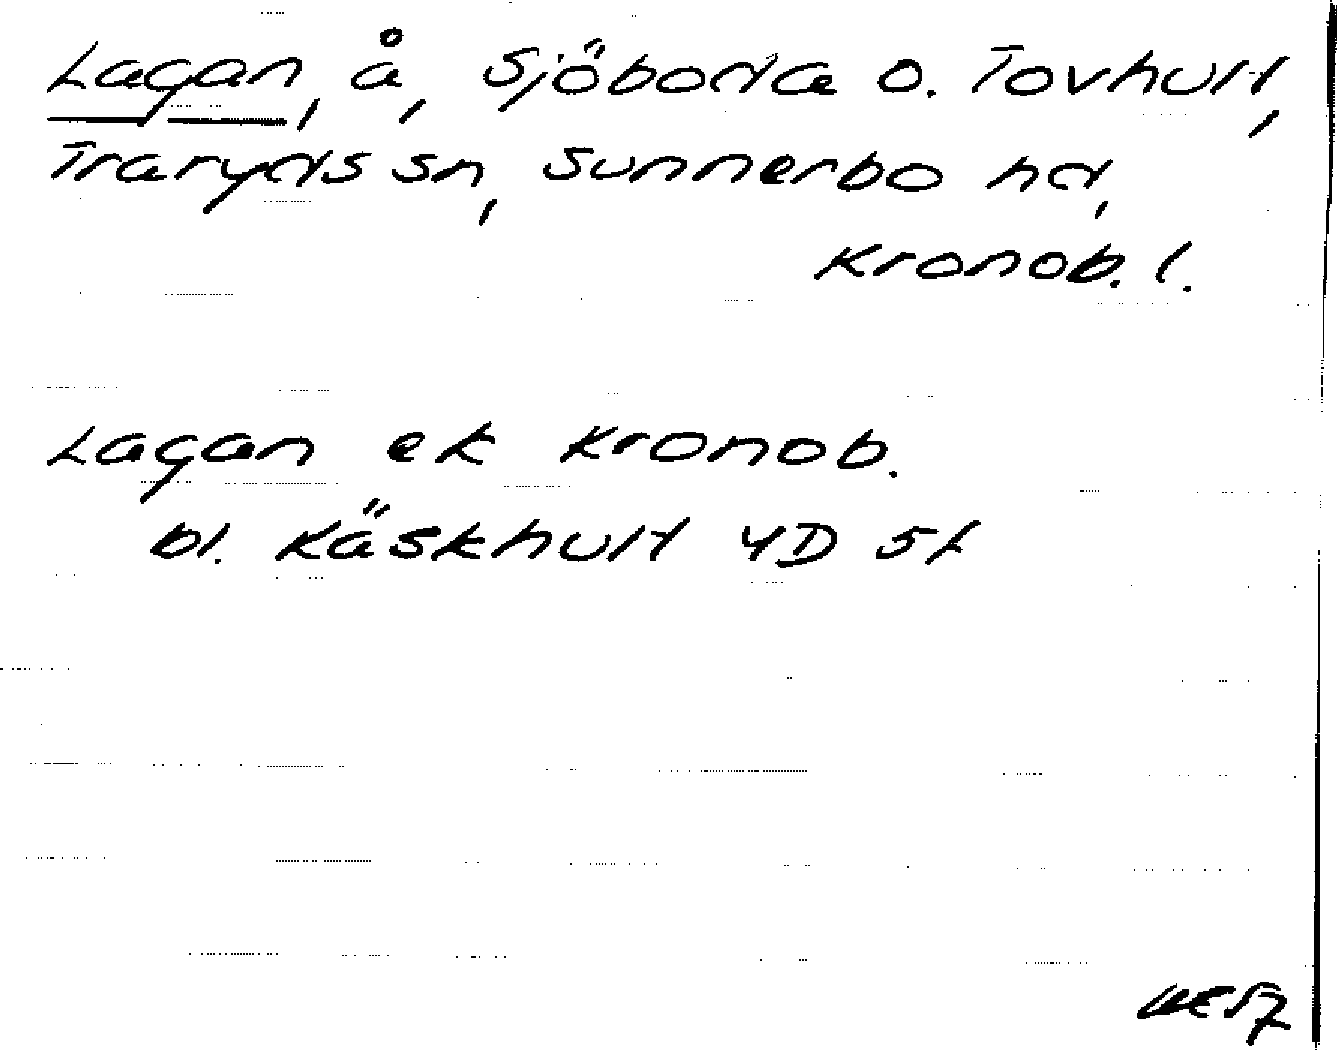 Lagan, å, Sjöboda o. Tovhult,
Traryds sn, Sunnerbo hd,
Kronob. l.
Lagan ek Kronob.
bl. Käskhult 4D 5f